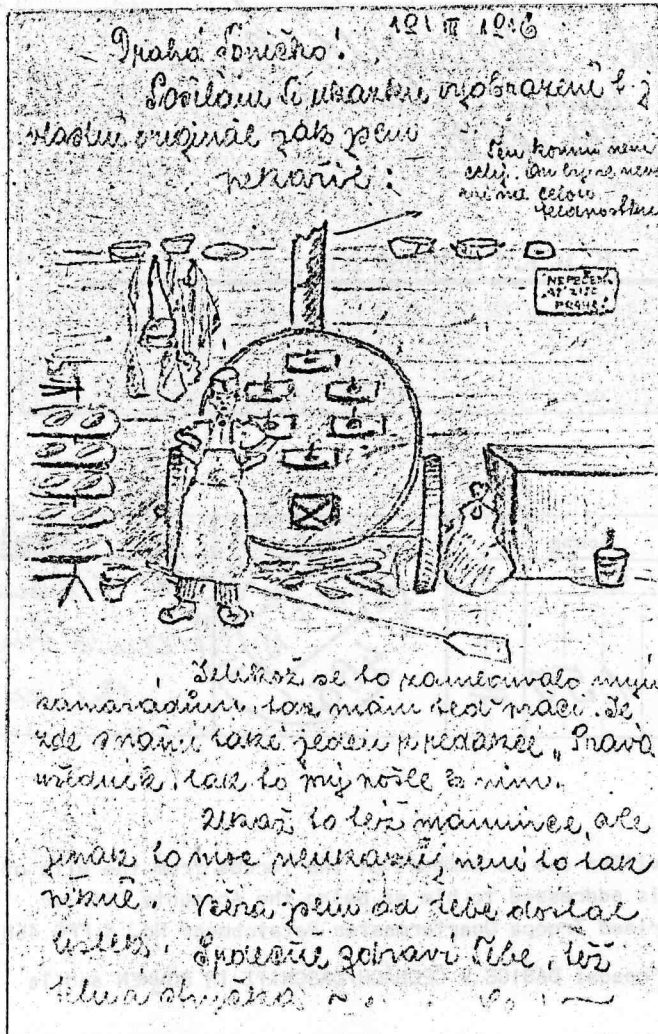 12/ III 1916
Drahá Toničko!
Posílám Ti ukázku vyobrazení t. j.
vlastně originál jak jsem
pekařil:
Ten komín není
celý. On by se neve
na celou
NEPEČEM
AŤ ŽIJE
PRAHA!
Jelikož se to zamlouvalo mým
kamarádům, tak mám teď práci. Je
zde s námi také jeden z redakce „Práva
úředník, tak to prý pošle s ním.
Ukaž to též mamince, ale
jinak to moc neukazuj není to tak
pěkné. Včera jsem od tebe dostal
lístek. Srdečně zdraví Tebe, též